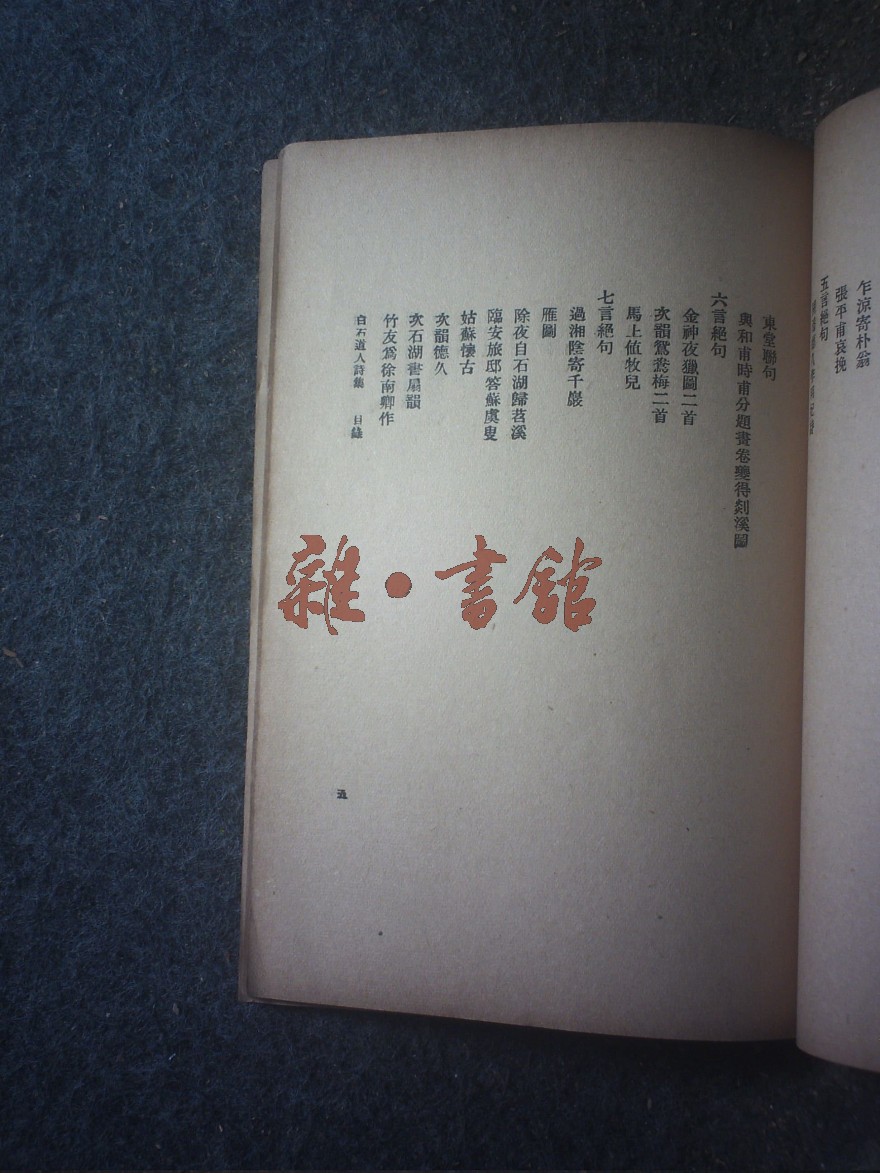 乍涼寄朴翁
張平甫哀挽
五言絕句
東堂聯句
與和甫時甫分題畫卷夔得剡溪圖
六言絕句
金神夜獵圖二首
次韻鴛鴦梅二首
馬上值牧兒
七言絕句
過湘陰寄千巖
雁圖
除夜自石湖歸苕溪
臨安旅邸答蘇虞叟
姑蘇懷古
次韻德久
次石湖書扇韻
竹友爲徐南卿作
白石道人詩集 目錄
五
雜·書館